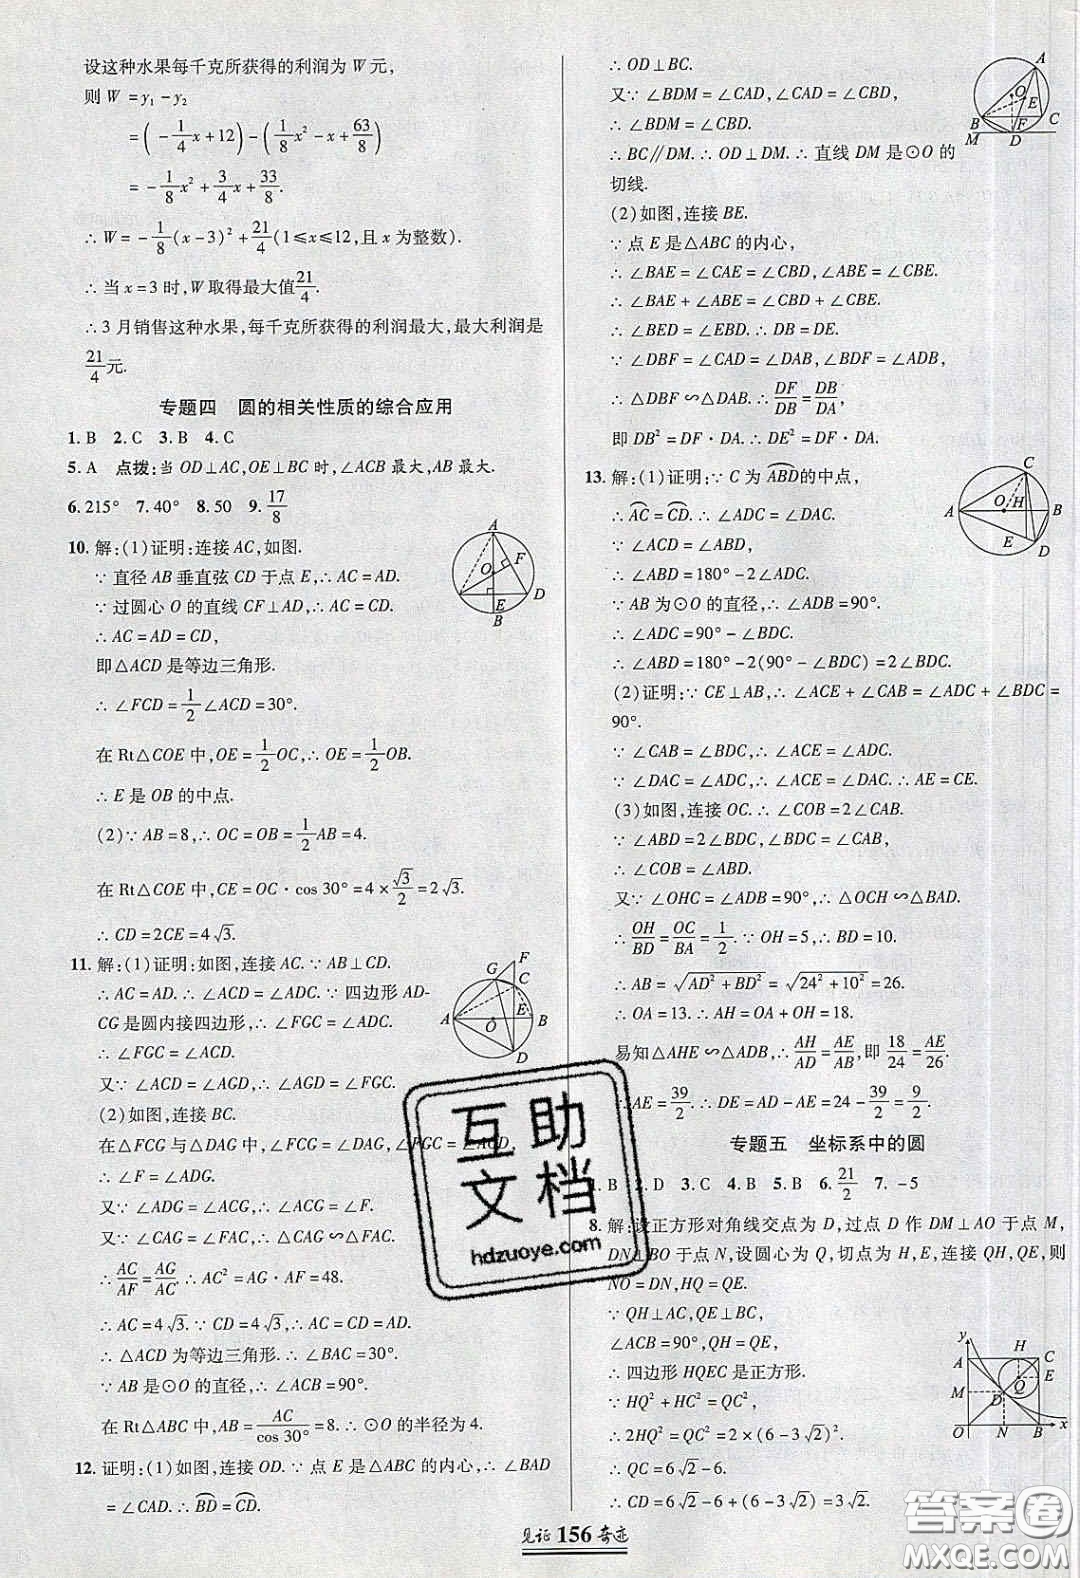 设这种水果每千克所获得的利润为 W 元,
则 W = y₁ - y₂
= (-1/4 x + 12) - (1/8 x² - x + 63/8)
= -1/8 x² + 3/4 x + 33/8.
∴ W = -1/8 (x-3)² + 21/4 (1≤x≤12,且 x 为整数).
∴ 当 x = 3 时, W 取得最大值 21/4.
∴ 3 月销售这种水果,每千克所获得的利润最大,最大利润是
21/4 元.
专题四 圆的相关性质的综合应用
1. B 2. C 3. B 4. C
5. A 点拨:当 OD⊥AC,OE⊥BC 时,∠ACB 最大,AB 最大.
6. 215° 7. 40° 8. 50 9. 17/8
10. 解:(1)证明:连接 AC,如图.
∵ 直径 AB 垂直弦 CD 于点 E,∴ AC = AD.
∵ 过圆心 O 的直线 CF⊥AD,∴ AC = CD.
∴ AC = AD = CD,
即△ACD 是等边三角形.
∴ ∠FCD = 1/2 ∠ACD = 30°.
在 Rt△COE 中,OE = 1/2 OC,∴ OE = 1/2 OB.
∴ E 是 OB 的中点.
(2)∵ AB = 8,∴ OC = OB = 1/2 AB = 4.
在 Rt△COE 中,CE = OC · cos 30° = 4 × √3/2 = 2√3.
∴ CD = 2CE = 4√3.
11. 解:(1)证明:如图,连接 AC. ∵ AB⊥CD.
∴ AC = AD. ∴ ∠ACD = ∠ADC. ∵ 四边形 AD-
CG 是圆内接四边形,∴ ∠FGC = ∠ADC.
∴ ∠FGC = ∠ACD.
又∵ ∠ACD = ∠AGD,∴ ∠AGD = ∠FGC.
(2)如图,连接 BC.
在△FCG 与△DAG 中,∠FCG = ∠DAG,∠AGD = ∠FGC,
∴ ∠F = ∠ADG.
又∵ ∠ADG = ∠ACG,∴ ∠ACG = ∠F.
又∵ ∠CAG = ∠FAC,∴ △CAG∽△FAC.
∴ AC/AF = AG/AC. ∴ AC² = AG · AF = 48.
∴ AC = 4√3. ∵ CD = 4√3,∴ AC = AD = CD.
∴ △ACD 为等边三角形. ∴ ∠BAC = 30°.
∵ AB 是⊙O 的直径,∴ ∠ACB = 90°.
在 Rt△ABC 中,AB = AC/cos 30° = 8. ∴ ⊙O 的半径为 4.
12. 证明:(1)如图,连接 OD. ∵ 点 E 是△ABC 的内心,∴ ∠BAD
= ∠CAD. ∴ BD = CD.
∴ OD⊥BC.
又∵ ∠BDM = ∠CAD,∠CAD = ∠CBD,
∴ ∠BDM = ∠CBD.
∴ BC∥DM. ∴ OD⊥DM. ∴ 直线 DM 是⊙O 的
切线.
(2)如图,连接 BE.
∵ 点 E 是△ABC 的内心,
∴ ∠BAE = ∠CAE = ∠CBD,∠ABE = ∠CBE.
∴ ∠BAE + ∠ABE = ∠CBD + ∠CBE.
∴ ∠BED = ∠EBD. ∴ DB = DE.
∵ ∠DBF = ∠CAD = ∠DAB,∠BDF = ∠ADB,
∴ △DBF∽△DAB. ∴ DF/DB = DB/DA,
即 DB² = DF · DA. ∴ DE² = DF · DA.
13. 解:(1)证明:∵ C 为 ABD的中点,
∴ AC = CD. ∴ ∠ADC = ∠DAC.
∴ ∠ABD = 180° - 2∠ADC.
∵ AB 为⊙O 的直径,∴ ∠ADB = 90°.
∴ ∠ADC = 90° - ∠BDC.
∴ ∠ABD = 180° - 2(90° - ∠BDC) = 2∠BDC.
(2)证明:∵ CE⊥AB,∴ ∠ACE + ∠CAB = ∠ADC + ∠BDC =
90°.
∵ ∠CAB = ∠BDC,∴ ∠ACE = ∠ADC.
∵ ∠DAC = ∠ADC,∴ ∠ACE = ∠DAC. ∴ AE = CE.
(3)如图,连接 OC. ∴ ∠COB = 2∠CAB.
∵ ∠ABD = 2∠BDC,∠BDC = ∠CAB,
∴ ∠COB = ∠ABD.
又∵ ∠OHC = ∠ADB = 90°,∴ △OCH∽△BAD.
∴ OH/BD = OC/BA = 1/2. ∵ OH = 5,∴ BD = 10.
∴ AB = √(AD² + BD²) = √(24² + 10²) = 26.
∴ OA = 13. ∴ AH = OA + OH = 18.
易知△AHE∽△ADB,∴ AH/AD = AE/AB,即 18/24 = AE/26.
∴ AE = 39/2. ∴ DE = AD - AE = 24 - 39/2 = 9/2.
专题五 坐标系中的圆
1. B 2. D 3. C 4. B 5. B 6. 21/2 7. -5
8. 解:设正方形对角线交点为 D,过点 D 作 DM⊥AO 于点 M,
DN⊥BO 于点 N,设圆心为 Q,切点为 H,E,连接 QH,QE,则
NO = DN,HQ = QE.
∵ QH⊥AC,QE⊥BC,
∠ACB = 90°,QH = QE,
∴ 四边形 HQEC 是正方形.
∵ HQ² + HC² = QC²,
∴ 2HQ² = QC² = 2×(6-3√2)².
∴ QC = 6√2 - 6.
∴ CD = 6√2 - 6 + (6-3√2)
见证 156 奇迹
互助
文档
hdzuoye.com
答案圈
MXQE.COM